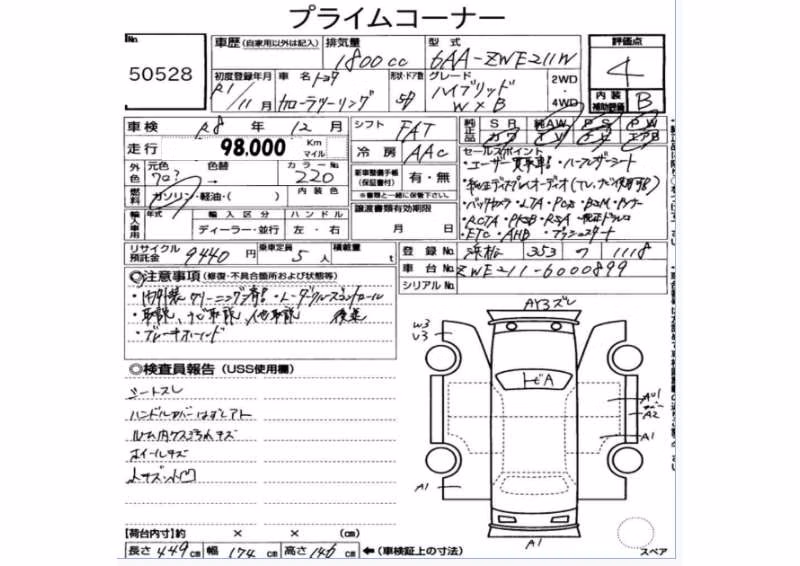 プライムコーナー
No.
50528
車歴 (自家用以外は記入)
排気量
1800cc
型式
6AA-ZWE211W
評価点
4
初度登録年月
R1/11月
車名 トヨタ
カローラツーリング
形状・ドア数
5D
グレード
ハイブリッド
W×B
2WD
4WD
内装
補助評価
B
車検 R8年 12月
走行 98,000 Km
マイル
シフト FAT
冷房 AAC
純正品
SR 純AW PS PW
カワ TV ナビ エアB
外色
元色
色替
→
カラーNo.
220
燃料
ガソリン・軽油・( )
内装色
新車整備手帳
(保証書付)
有・無
※書類と一緒に保管下さい。
セールスポイント
・ユーザー買取車・ハーフレザーシート
・純正ディスプレイオーディオ(TV,ナビ使用可)
・バックカメラ・LTA・PCS・BSM
・RCTA・PKSB・RSA
・ETC・AHB・プッシュスタート
輸入車用
年式
輸入区分
ハンドル
ディーラー・並行
左・右
譲渡書類有効期限
月 日
リサイクル預託金
9440円
乗車定員
5人
積載量
t
登録No. 浜松 353 1118
車台No. ZWE211-6000899
シリアルNo.
◎注意事項(修復・不具合箇所および状態等)
・内外装クリーニング済・レーダークルーズコントロール
・取説、ナビ取説、他取説 後送
・ブレーキホールド
◎検査員報告 (USS使用欄)
シートスレ
ハンドルカバーはずしアト
ルーム内プラスチ汚れキズ
ホイールキズ
小キズ・小凹
AY3ズレ
W3
U3
トビA
AU1
A2
A1
A1
A1
スペア
【荷台内寸】約 × × (cm)
長さ 449cm 幅 174cm 高さ 146cm ←(車検証上の寸法)